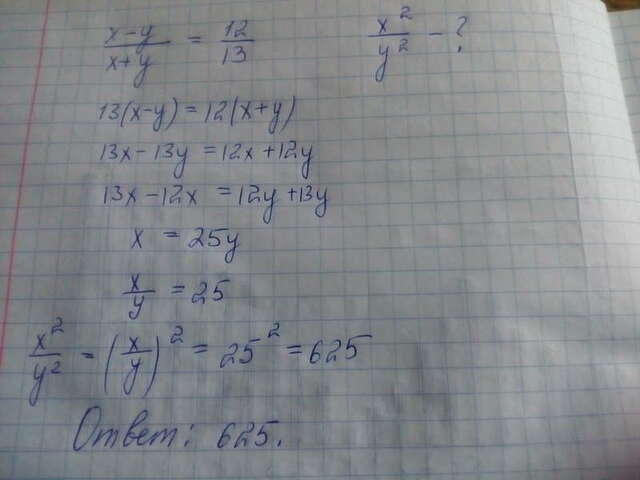 (x-y)/(x+y) = 12/13     x²/y² - ?
13(x-y)=12(x+y)
13x-13y=12x+12y
13x-12x=12y+13y
x = 25y
x/y = 25
x²/y² = (x/y)² = 25² = 625
Ответ: 625.